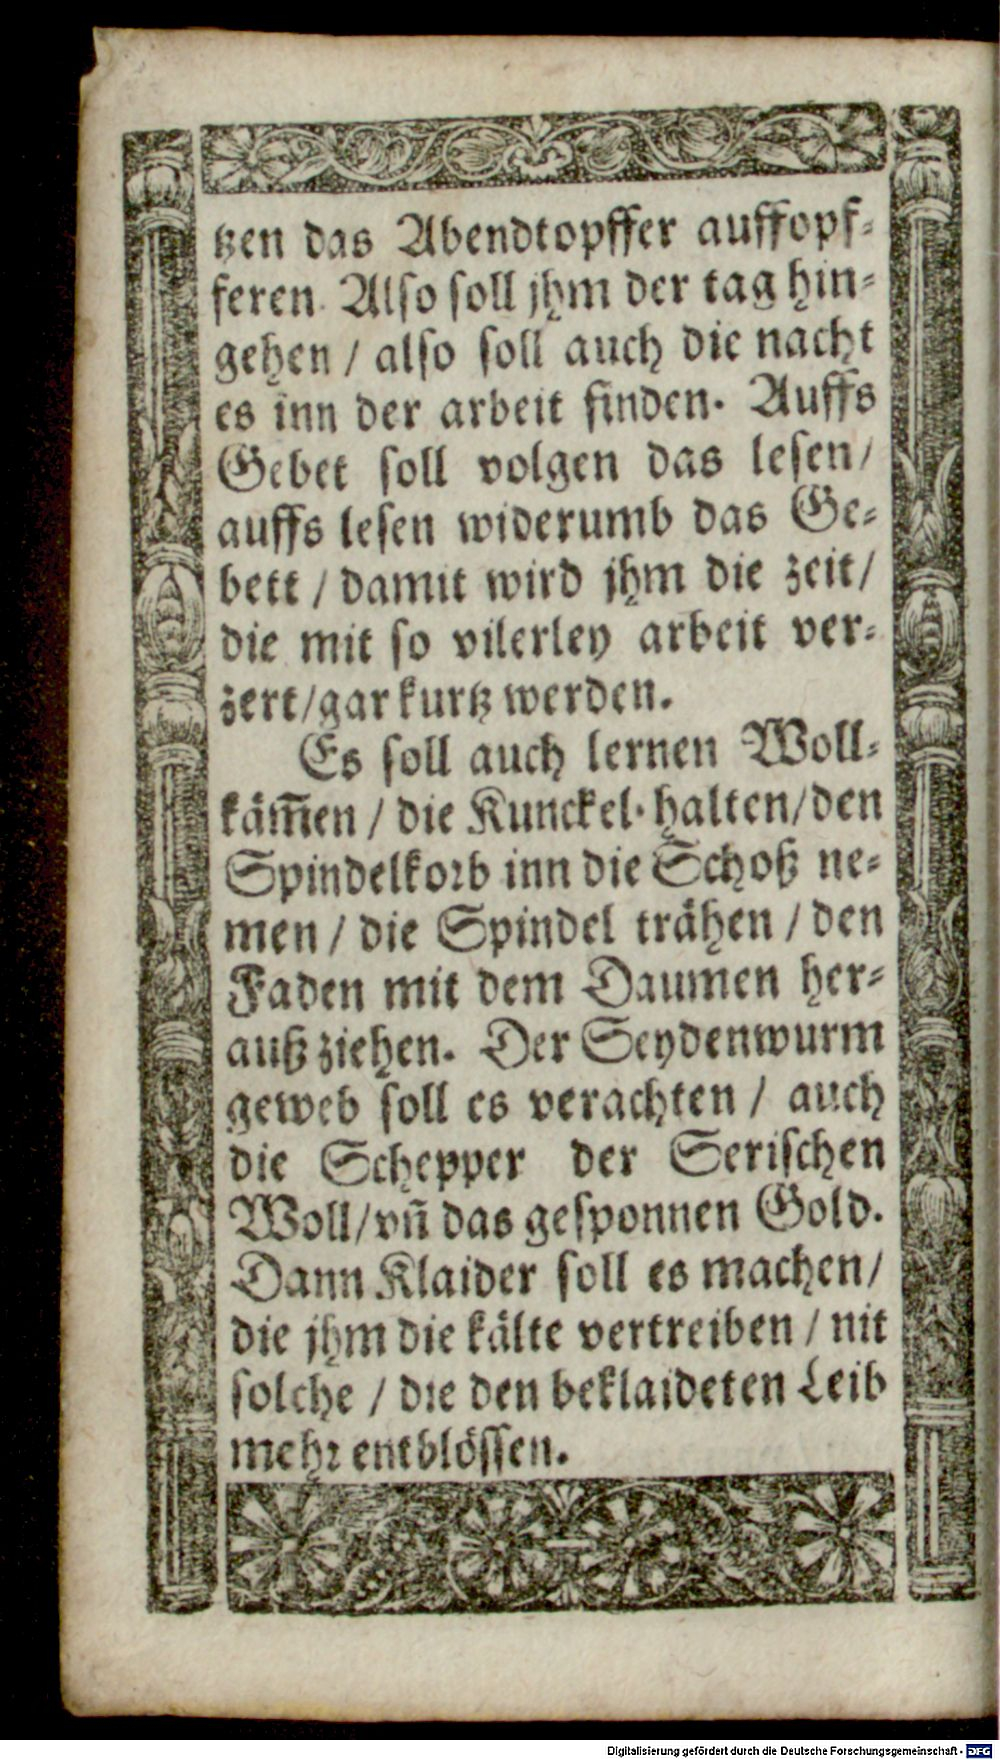 tzen das Abendtopffer auffopf⸗
feren. Also soll jhm der tag hin⸗
gehen / also soll auch die nacht
es inn der arbeit finden. Auffs
Gebet soll volgen das lesen/
auffs lesen widerumb das Ge⸗
bett / damit wird jhm die zeit/
die mit so vilerley arbeit ver⸗
zert/gar kurtz werden.
Es soll auch lernen Woll⸗
käm̃en / die Kunckel halten/den
Spindelkorb inn die Schoß ne⸗
men / die Spindel trähen / den
Faden mit dem Daumen her⸗
auß ziehen. Der Seydenwurm
geweb soll es verachten / auch
die Schepper der Serischen
Woll/vñ das gesponnen Gold.
Dann Klaider soll es machen/
die jhm die kälte vertreiben / nit
solche / die den beklaideten Leib
mehr entblössen.
Digitalisierung gefördert durch die Deutsche Forschungsgemeinschaft - DFG